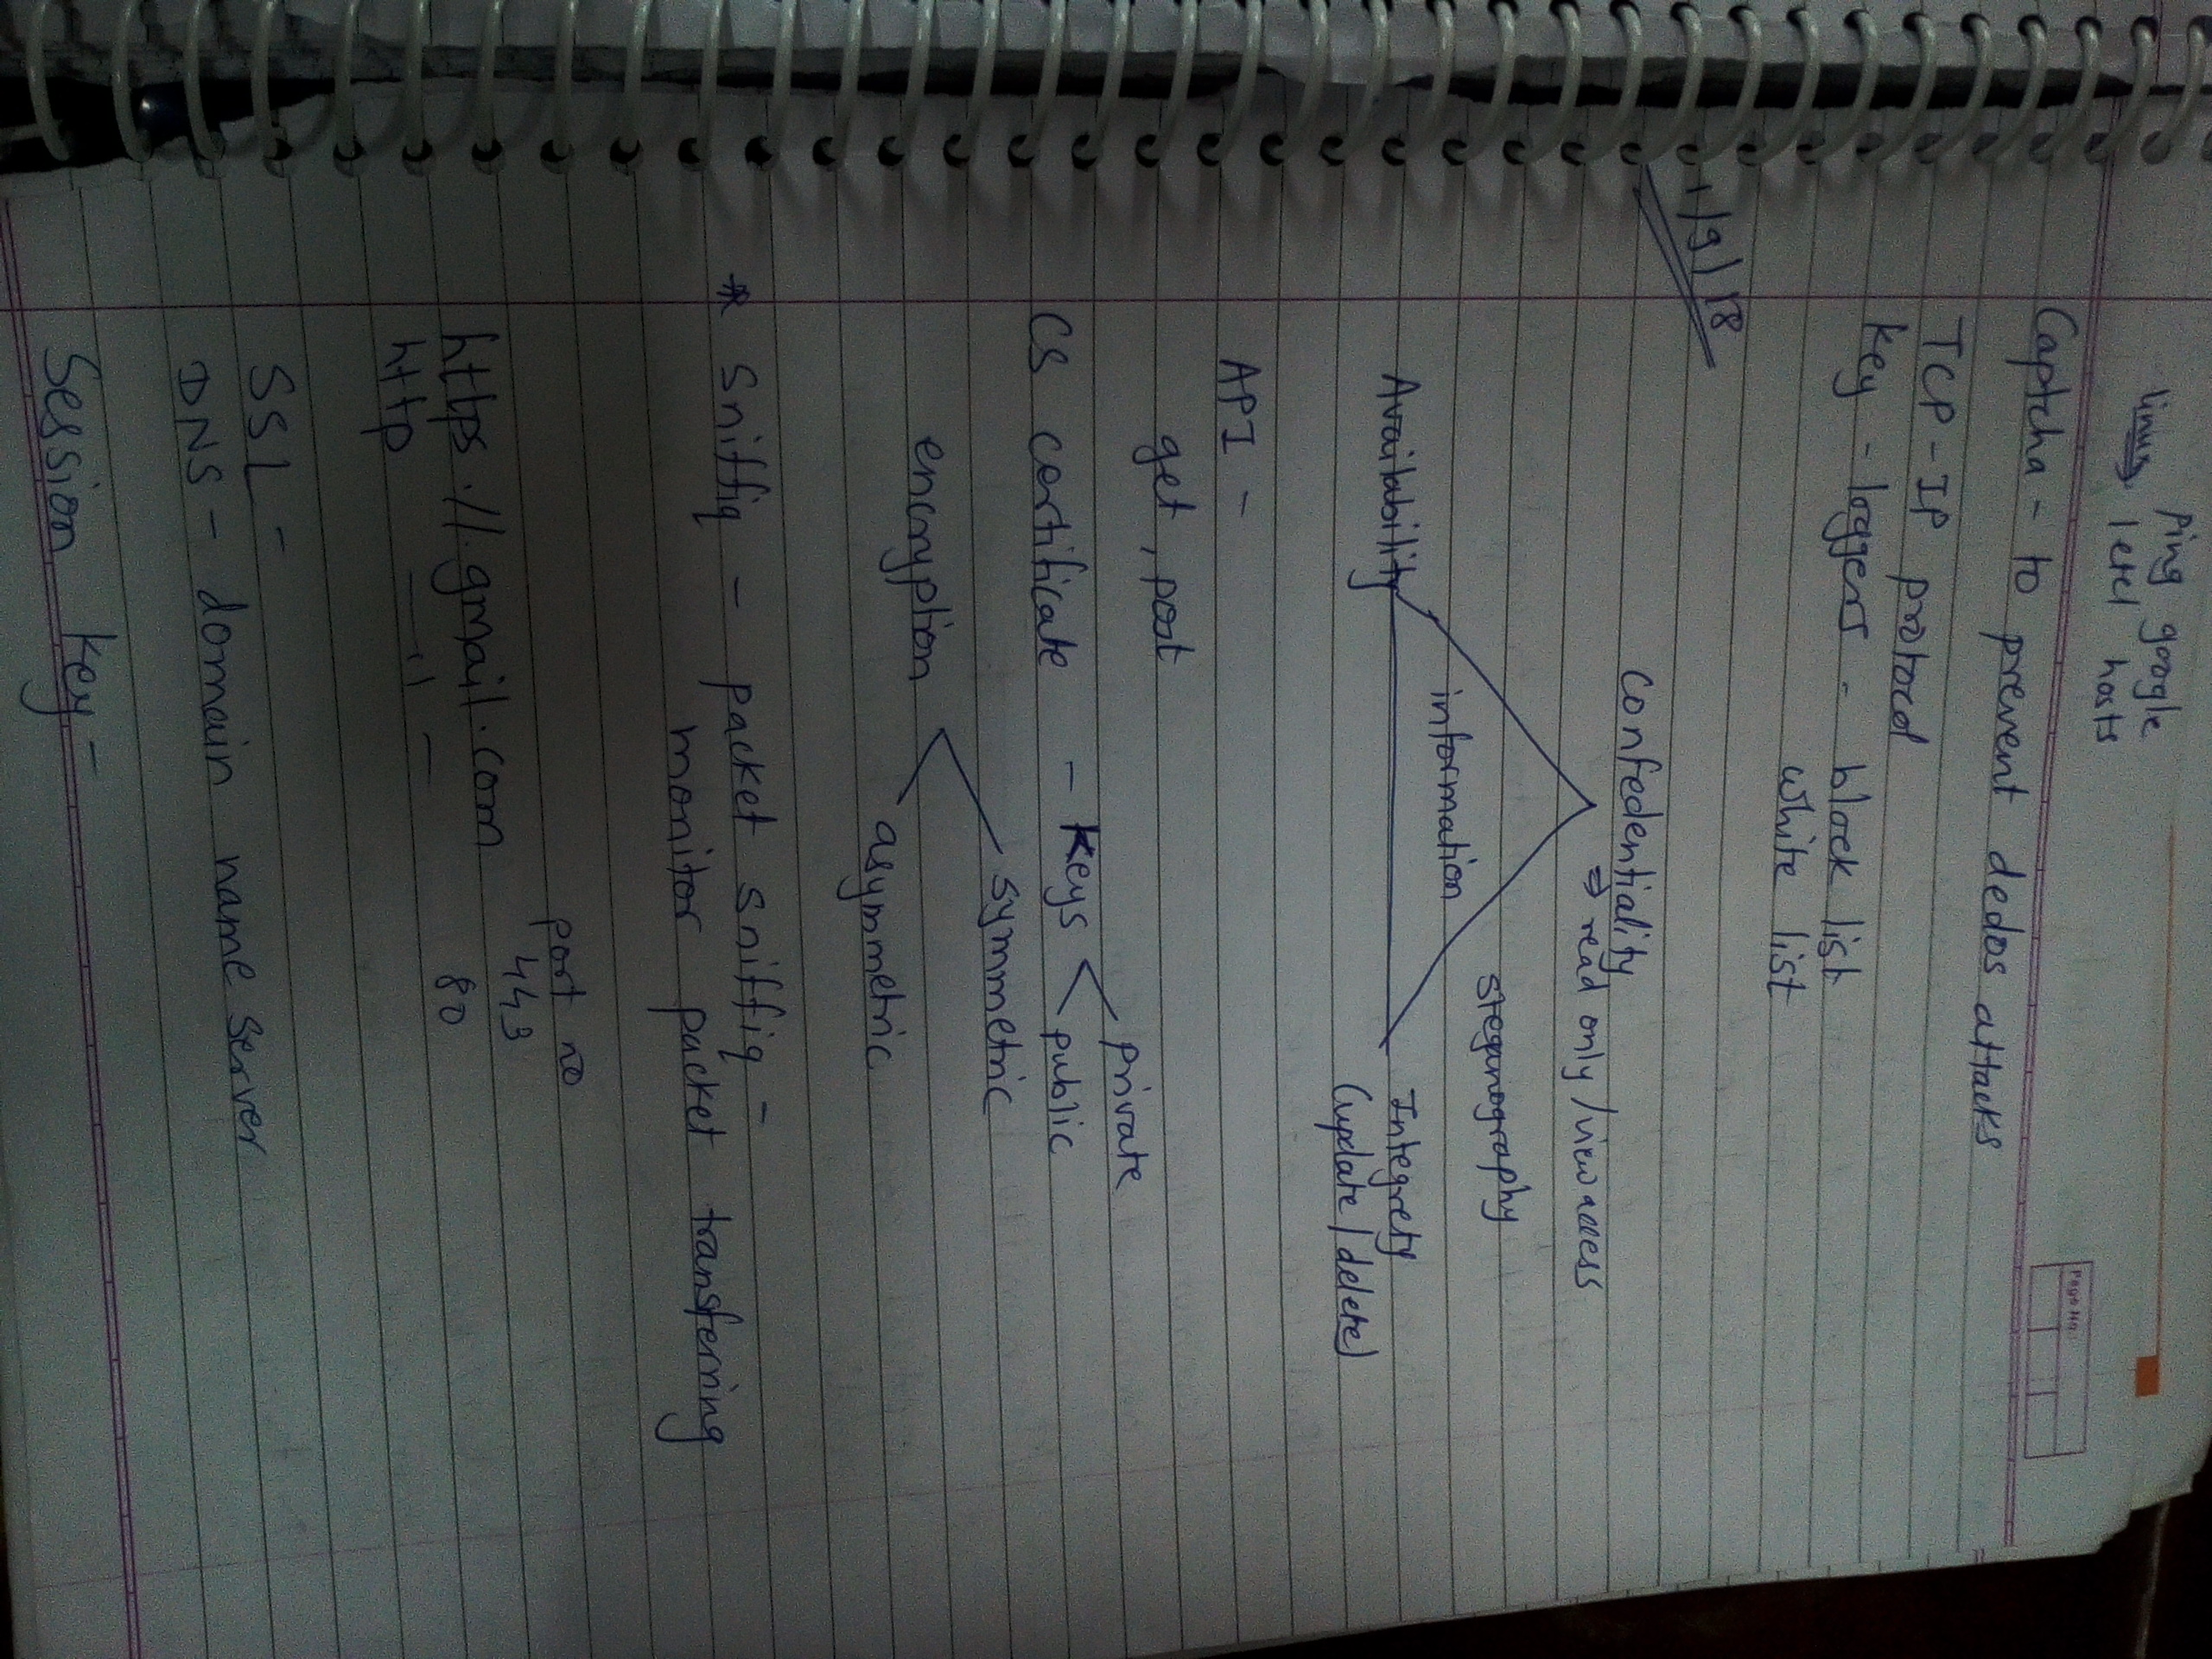 Ping google
linux letcl hosts
Page No.:
Captcha - to prevent dedos attacks
TCP - IP protocol
key - loggers - block list
white list
1/9/18
Confedentiality
⇒ read only / view access
steganography
information
Availability
Integrety
(update / delete)
API -
get, post
private
CS certificate - keys
public
symmetric
encryption
asymmetric
* Sniffig - packet sniffig -
monitor packet transferring
port no
443
https://.gmail.com
80
http —11—
SSL -
DNS - domain name server
Session key -